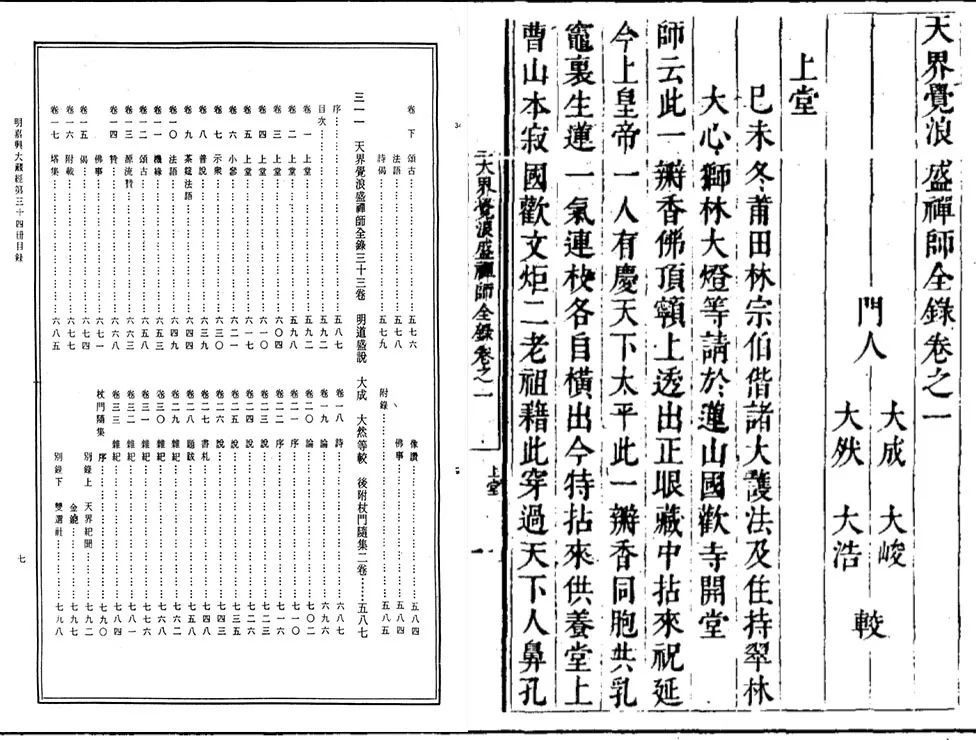 天界覺浪盛禪師全錄卷之一
門人 大成 大峻 大然 大浩 較
上堂
巳未冬莆田林宗伯偕諸大護法及住持翠林
大心獅林大燈等請於蓮山國歡寺開堂
師云此一瓣香佛頂𩕳上透出正眼藏中拈來祝延
今上皇帝一人有慶天下太平此一瓣香同胞共乳
竈裏生蓮一氣連枝各自橫出今特拈來供養堂上
曹山本寂國歡文炬二老祖藉此穿過天下人鼻孔
天界覺浪盛禪師全錄卷之一 上堂 一
卷下 頌古……五七六
法語……五七七
詩偈……五七九
像讚……五八四
佛事……五八四
附錄……五八五
三一一 天界覺浪盛禪師全錄三十三卷 明道盛說 大成 大然等較 後附杖門隨集二卷……五八七
序……五八七
目次……五九二
卷一 上堂……五九二
卷二 上堂……五九八
卷三 上堂……六〇四
卷四 上堂……六一〇
卷五 上堂……
卷六 小參……六二一
卷七 示衆……六三〇
卷八 普說……六三九
卷九 茶筵法語……
卷一〇 法語……六四九
卷一一 機緣……六五三
卷一二 頌古……六五八
卷一三 源流贊……六六三
卷一四 贊……六六八
佛事……六七一
卷一五 偈……六七四
卷一六 附載……六七七
卷一七 塔集……六八五
卷一八 詩……六八七
卷一九 論……六九六
卷二〇 論……七〇二
卷二一 序……七一〇
卷二二 序……七一六
卷二三 說……七二三
卷二四 說……
卷二五 說……七三五
卷二六 說……七四三
卷二七 書札……七四八
卷二八 題跋……七五八
卷二九 雜紀……七六二
卷三〇 雜紀……
卷三一 雜紀……七七六
卷三二 雜紀……七八一
卷三三 雜紀……七八四
杖門隨集 序……七九〇
別錄上 天界紀聞……七九二
金鎞……
別錄下 雙選社……七九八
明嘉興大藏經第三十四冊目錄
七